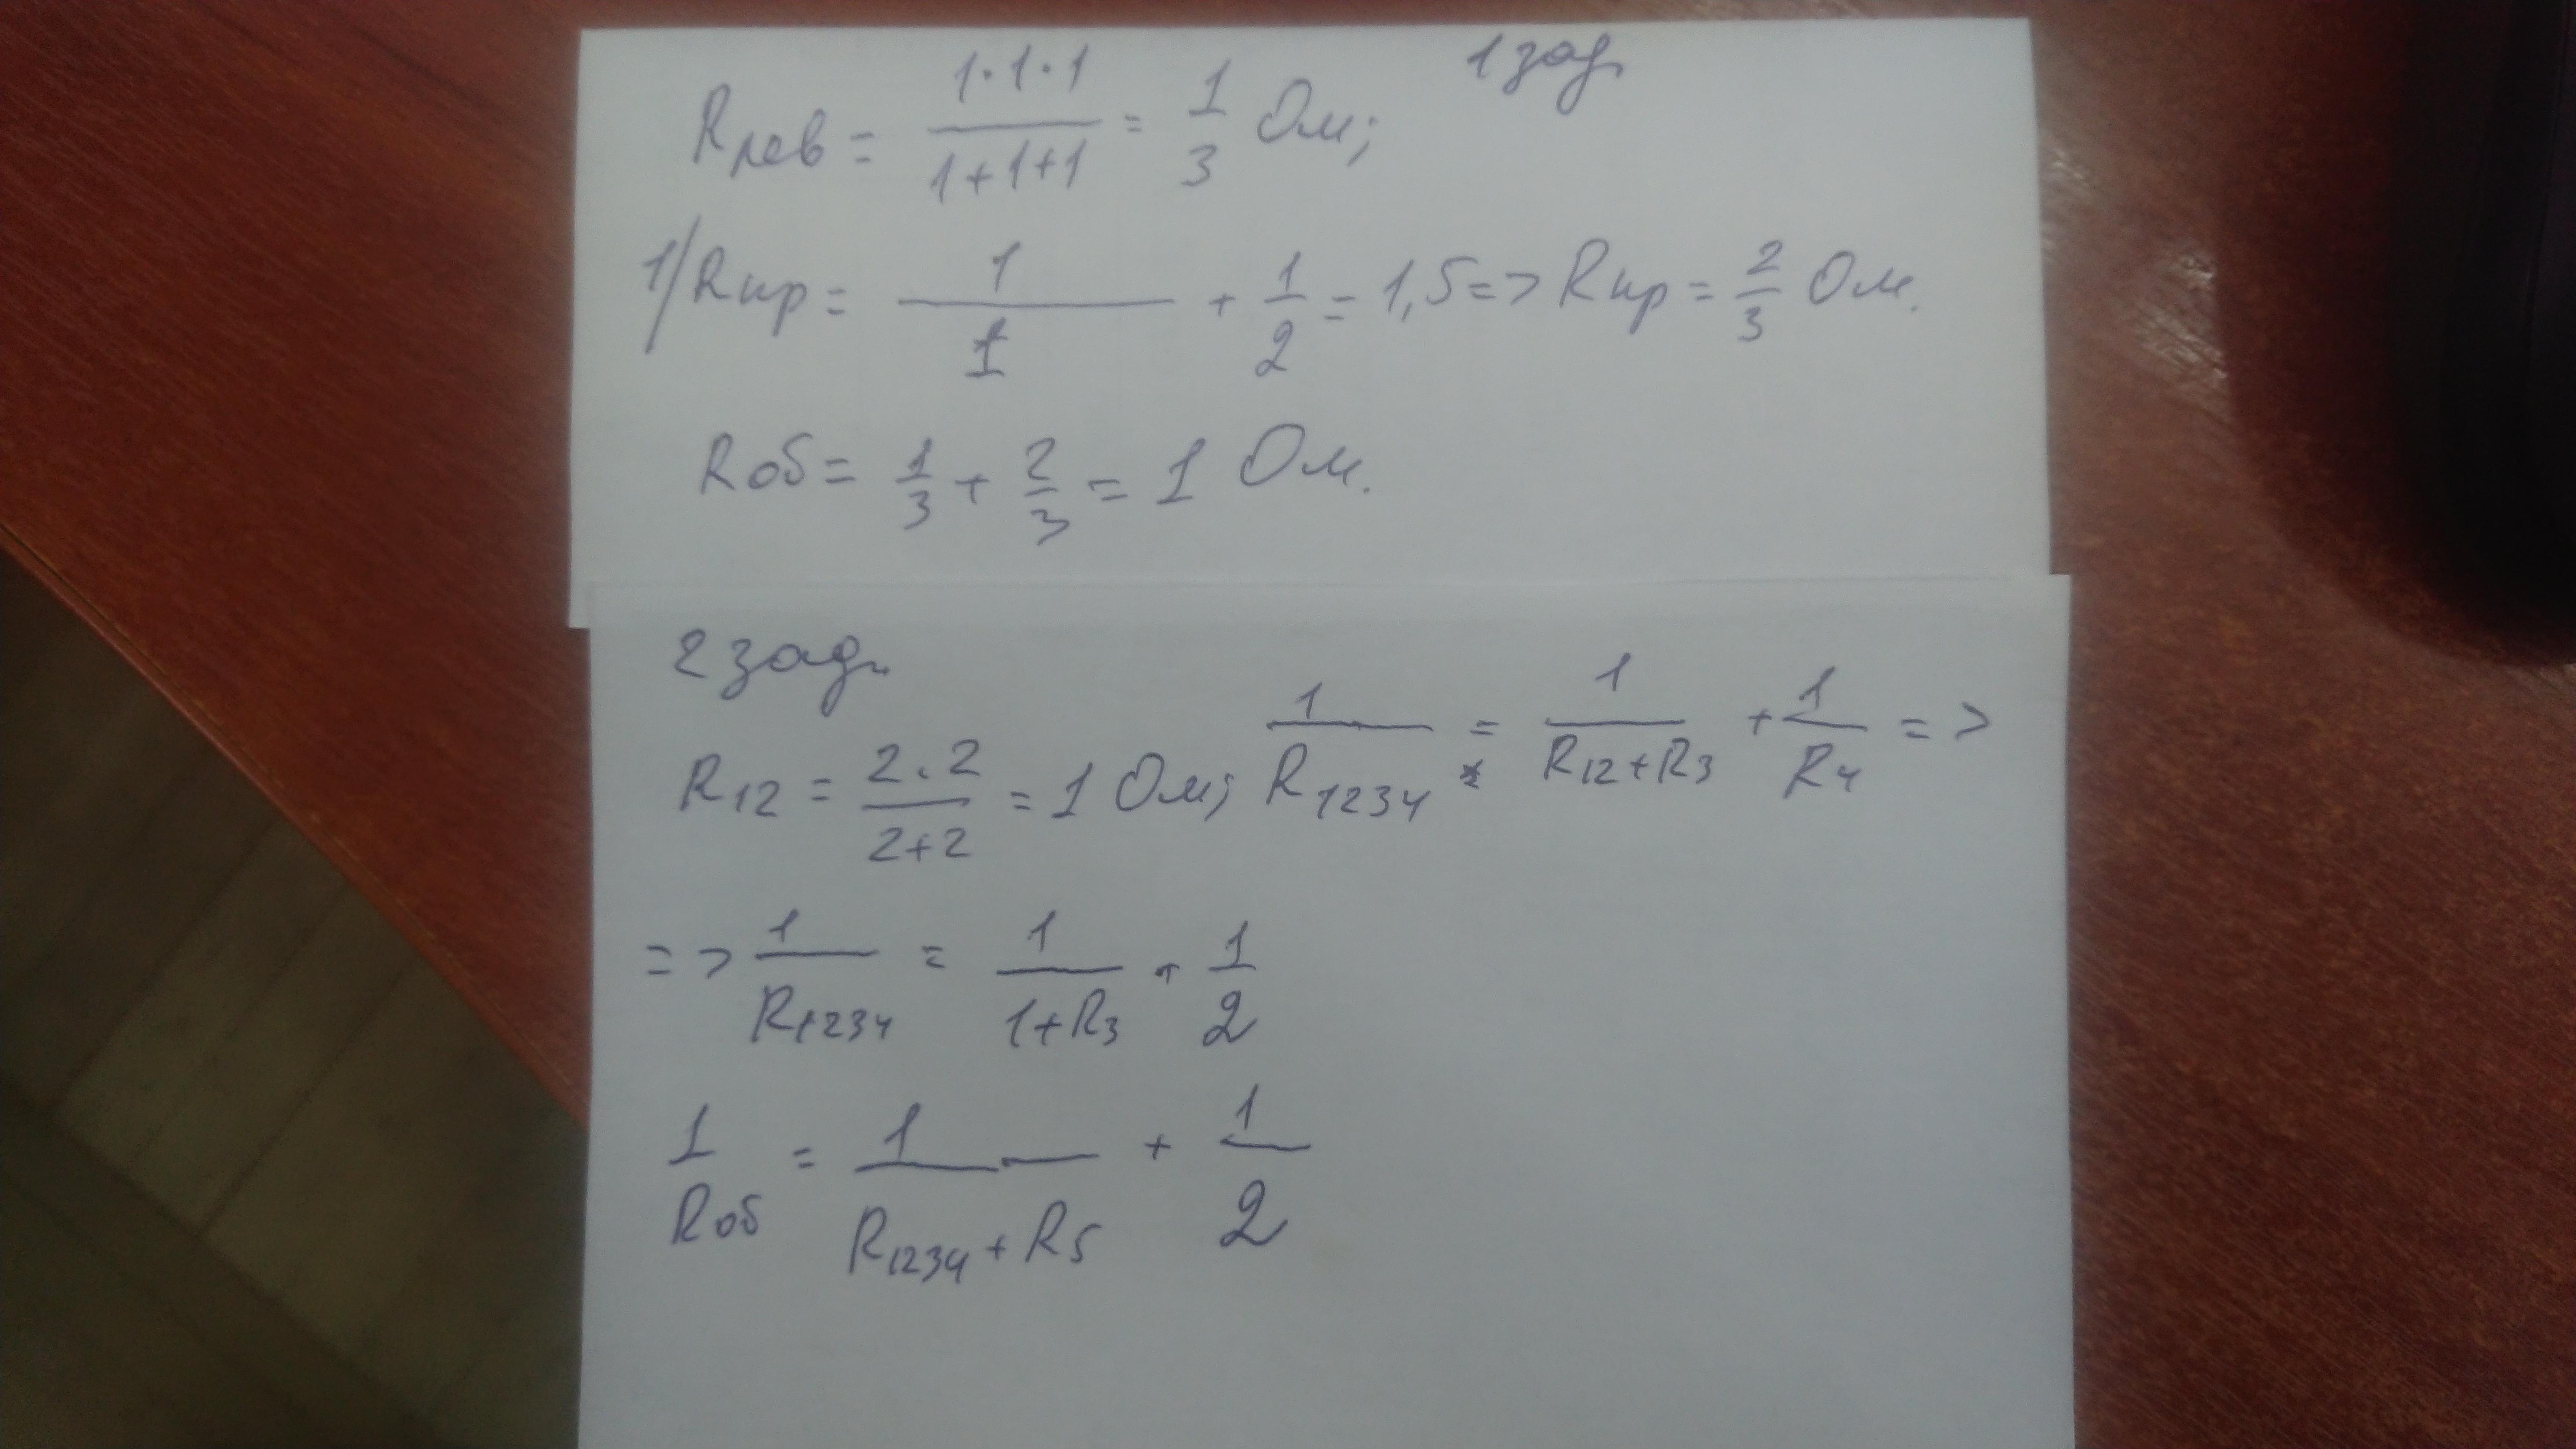 1 зад.
Rлев = 1·1·1/1+1+1 = 1/3 Ом;
1/Rпр = 1/1 + 1/2 = 1,5 => Rпр = 2/3 Ом.
Rоб = 1/3 + 2/3 = 1 Ом.
2 зад.
R12 = 2·2/2+2 = 1 Ом; 1/R1234 = 1/R12+R3 + 1/R4 =>
=> 1/R1234 = 1/1+R3 + 1/2
1/Rоб = 1/R1234+R5 + 1/2